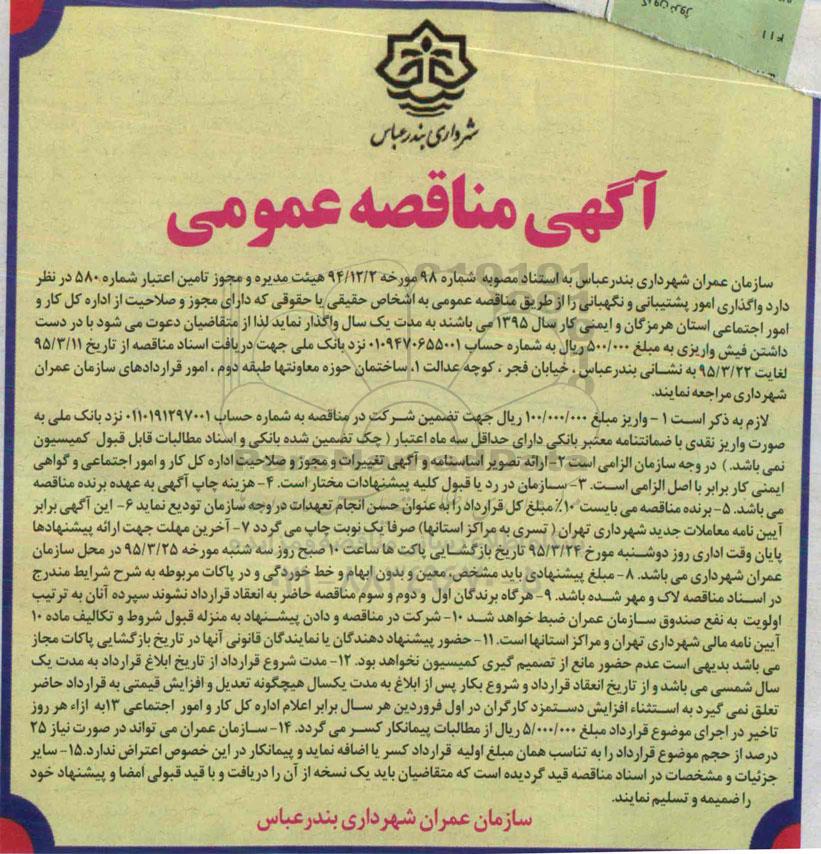 شهرداری بندرعباس
آگهی مناقصه عمومی
سازمان عمران شهرداری بندرعباس به استناد مصوبه شماره ۹۸ مورخه ۹۴/۱۲/۲ هیئت مدیره و مجوز تامین اعتبار شماره ۵۸۰ در نظر
دارد واگذاری امور پشتیبانی و نگهبانی را از طریق مناقصه عمومی به اشخاص حقیقی یا حقوقی که دارای مجوز و صلاحیت از اداره کل کار و
امور اجتماعی استان هرمزگان و ایمنی کار سال ۱۳۹۵ می باشند به مدت یک سال واگذار نماید لذا از متقاضیان دعوت می شود با در دست
داشتن فیش واریزی به مبلغ ۵۰۰/۰۰۰ ریال به شماره حساب ۰۱۰۹۴۷۰۶۵۵۰۰۱ نزد بانک ملی جهت دریافت اسناد مناقصه از تاریخ ۹۵/۳/۱۱
لغایت ۹۵/۳/۲۲ به نشانی بندرعباس ، خیابان فجر ، کوچه عدالت ۱، ساختمان حوزه معاونتها طبقه دوم ، امور قراردادهای سازمان عمران
شهرداری مراجعه نمایند.
لازم به ذکر است ۱ - واریز مبلغ ۱۰۰/۰۰۰/۰۰۰ ریال جهت تضمین شرکت در مناقصه به شماره حساب ۰۱۱۰۱۹۱۲۹۷۰۰۱ نزد بانک ملی به
صورت واریز نقدی یا ضمانتنامه معتبر بانکی دارای حداقل سه ماه اعتبار ( چک تضمین شده بانکی و اسناد مطالبات قابل قبول کمیسیون
نمی باشد. ) در وجه سازمان الزامی است ۲- ارائه تصویر اساسنامه و آگهی تغییرات و مجوز و صلاحیت اداره کل کار و امور اجتماعی و گواهی
ایمنی کار برابر با اصل الزامی است. ۳- سازمان در رد یا قبول کلیه پیشنهادات مختار است. ۴- هزینه چاپ آگهی به عهده برنده مناقصه
می باشد. ۵- برنده مناقصه می بایست ۱۰٪ مبلغ کل قرارداد را به عنوان حسن انجام تعهدات در وجه سازمان تودیع نماید ۶- این آگهی برابر
آیین نامه معاملات جدید شهرداری تهران ( تسری به مراکز استانها) صرفا یک نوبت چاپ می گردد ۷- آخرین مهلت جهت ارائه پیشنهادها
پایان وقت اداری روز دوشنبه مورخ ۹۵/۳/۲۴ تاریخ بازگشایی پاکت ها ساعت ۱۰ صبح روز سه شنبه مورخه ۹۵/۳/۲۵ در محل سازمان
عمران شهرداری می باشد. ۸- مبلغ پیشنهادی باید مشخص، معین و بدون ابهام و خط خوردگی و در پاکات مربوطه به شرح شرایط مندرج
در اسناد مناقصه لاک و مهر شده باشد. ۹- هرگاه برندگان اول و دوم و سوم مناقصه حاضر به انعقاد قرارداد نشوند سپرده آنان به ترتیب
اولویت به نفع صندوق سازمان عمران ضبط خواهد شد ۱۰- شرکت در مناقصه و دادن پیشنهاد به منزله قبول شروط و تکالیف ماده ۱۰
آیین نامه مالی شهرداری تهران و مراکز استانها است. ۱۱- حضور پیشنهاد دهندگان یا نمایندگان قانونی آنها در تاریخ بازگشایی پاکات مجاز
می باشد بدیهی است عدم حضور مانع از تصمیم گیری کمیسیون نخواهد بود. ۱۲- مدت شروع قرارداد از تاریخ ابلاغ قرارداد به مدت یک
سال شمسی می باشد و از تاریخ انعقاد قرارداد و شروع بکار پس از ابلاغ به مدت یکسال هیچگونه تعدیل و افزایش قیمتی به قرارداد حاضر
تعلق نمی گیرد به استثناء افزایش دستمزد کارگران در اول فروردین هر سال برابر اعلام اداره کل کار و امور اجتماعی ۱۳به ازاء هر روز
تاخیر در اجرای موضوع قرارداد مبلغ ۵/۰۰۰/۰۰۰ ریال از مطالبات پیمانکار کسر می گردد. ۱۴- سازمان عمران می تواند در صورت نیاز ۲۵
درصد از حجم موضوع قرارداد را به تناسب همان مبلغ اولیه قرارداد کسر یا اضافه نماید و پیمانکار در این خصوص اعتراض ندارد.۱۵- سایر
جزئیات و مشخصات در اسناد مناقصه قید گردیده است که متقاضیان باید یک نسخه از آن را دریافت و با قید قبولی امضا و پیشنهاد خود
را ضمیمه و تسلیم نمایند.
سازمان عمران شهرداری بندرعباس